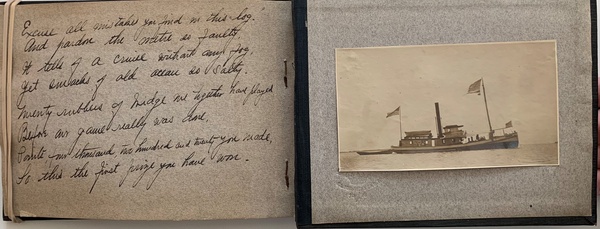 Excuse all mistakes you find in this "log."
And pardon the metre so faulty,
It tells of a cruise without any fog,
Yet smacks of old ocean so salty.
Twenty rubbers of bridge we together have played
Before our game really was done,
Points four thousand six hundred and twenty you made,
So this the first prize you have won.